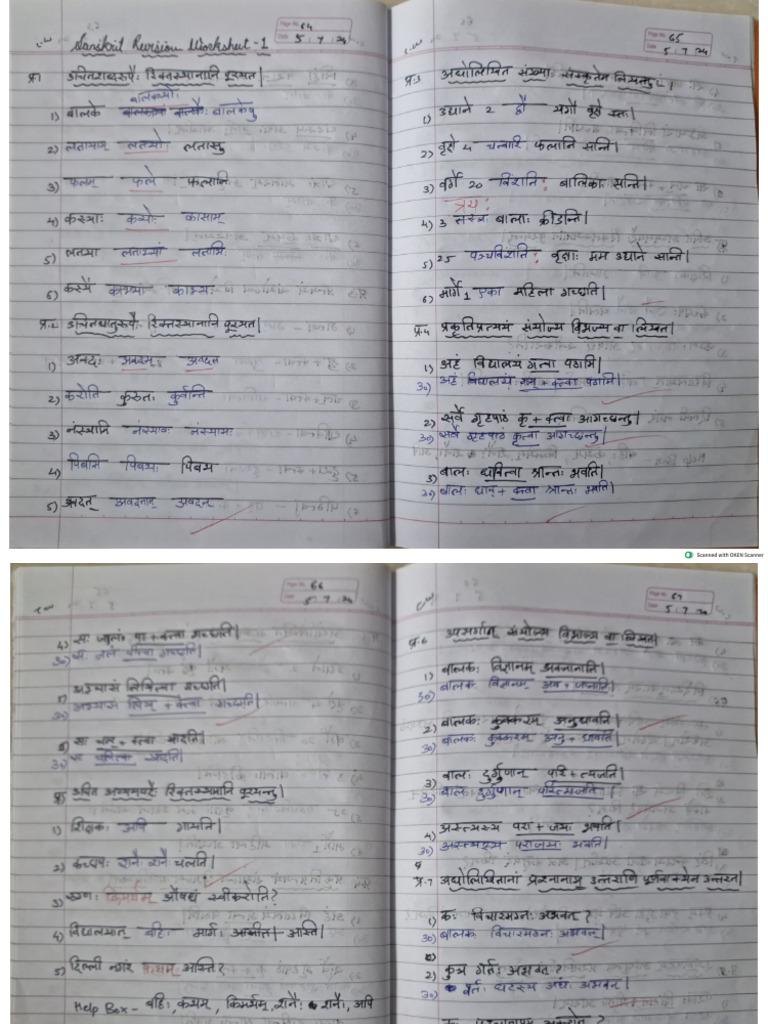 Sanskrit Revision Worksheet-1
Page No. 64
Date 5.7.24
प्र.1 उचितशब्दरूपैः रिक्तस्थानानि पूरयत।
बालकयोः
1) बालके बालकेषु
2) लतायाम् लतयोः लतासु
3) फलम् फले फलानि
4) कस्याः कयोः कासाम्
5) लतया लताभ्यां लताभिः
6) कस्यै काभ्यां काभ्यः
प्र.2 उचितधातुरूपैः रिक्तस्थानानि पूरयत।
1) अवदः अवदतम् अवदत
2) करोति कुरुतः कुर्वन्ति
3) नंस्यामि नंस्यावः नंस्यामः
4) पिबसि पिबथः पिबथ
5) अवदत् अवदताम् अवदन्
Page No. 65
Date 5.7.24
प्र.3 अधोलिखित संख्याः संस्कृतेन लिखत।
1) उद्याने 2 द्वौ
2) वृक्षे 4 चत्वारि फलानि सन्ति।
3) वर्गे 20 विंशतिः बालिका सन्ति।
त्रयः
4) 3 बालाः क्रीडन्ति।
5) 25 पञ्चविंशतिः वृक्षाः मम उद्याने सन्ति।
6) मार्गे 1 एका महिला गच्छति।
प्र.4 प्रकृतिप्रत्ययं संयोज्य विभज्य वा लिखत।
1) अहं विद्यालयं गत्वा पठामि।
उ०) अहं विद्यालयं गम् + क्त्वा पठामि।
2) सर्वे गृहपाठं कृ + क्त्वा आगच्छन्तु।
उ०) सर्वे गृहपाठं कृत्वा आगच्छन्तु।
3) बालः धावित्वा श्रान्तः भवति।
उ०) बालः धाव् + क्त्वा श्रान्तः भवति।
Scanned with OKEN Scanner
Page No. 66
5.7.24
4) सः जलं पा + क्त्वा गच्छति।
उ०) सः जलं पीत्वा गच्छति।
5) अभ्यासं लिखित्वा गच्छति।
उ०) अभ्यासं लिख् + क्त्वा गच्छति।
6) सा + क्त्वा खादति।
उ०) सा खादति।
प्र.5 उचित अव्ययपदैः रिक्तस्थानानि पूरयन्तु।
1) शिक्षकः अपि गायति।
2) कच्छपः शनैः शनैः चलति।
3) रुग्णः किमर्थम् औषधं स्वीकरोति?
4) विद्यालयात् बहिः मार्गः अस्ति।
5) दिल्ली नगरं कथम् अस्ति?
Help Box - बहिः, कथम्, किमर्थम्, शनैः शनैः, अपि
Page No. 67
5.7.24
प्र.6 उपसर्गान् संयोज्य विभज्य वा लिखत।
1) बालकः विज्ञानम् अवजानाति।
उ०) बालकः विज्ञानम् अव + जानाति।
2) बालकः कुक्कुरम् अनुधावति।
उ०) बालकः कुक्कुरम् अनु + धावति।
3) बालः दुर्गुणान् परि + त्यजति।
उ०) बालः दुर्गुणान् परित्यजति।
4) असत्यस्य परा + जयः भवति।
उ०) असत्यस्य पराजयः भवति।
प्र.7 अधोलिखितानां प्रश्नानाम् उत्तराणि पूर्णवाक्येन
1) कः विचारमग्नः अभवत्?
उ०) बालकः विचारमग्नः अभवत्।
2) कुत्र गर्तः अभवत्?
उ०) गर्तः घटस्य अधः अभवत्।